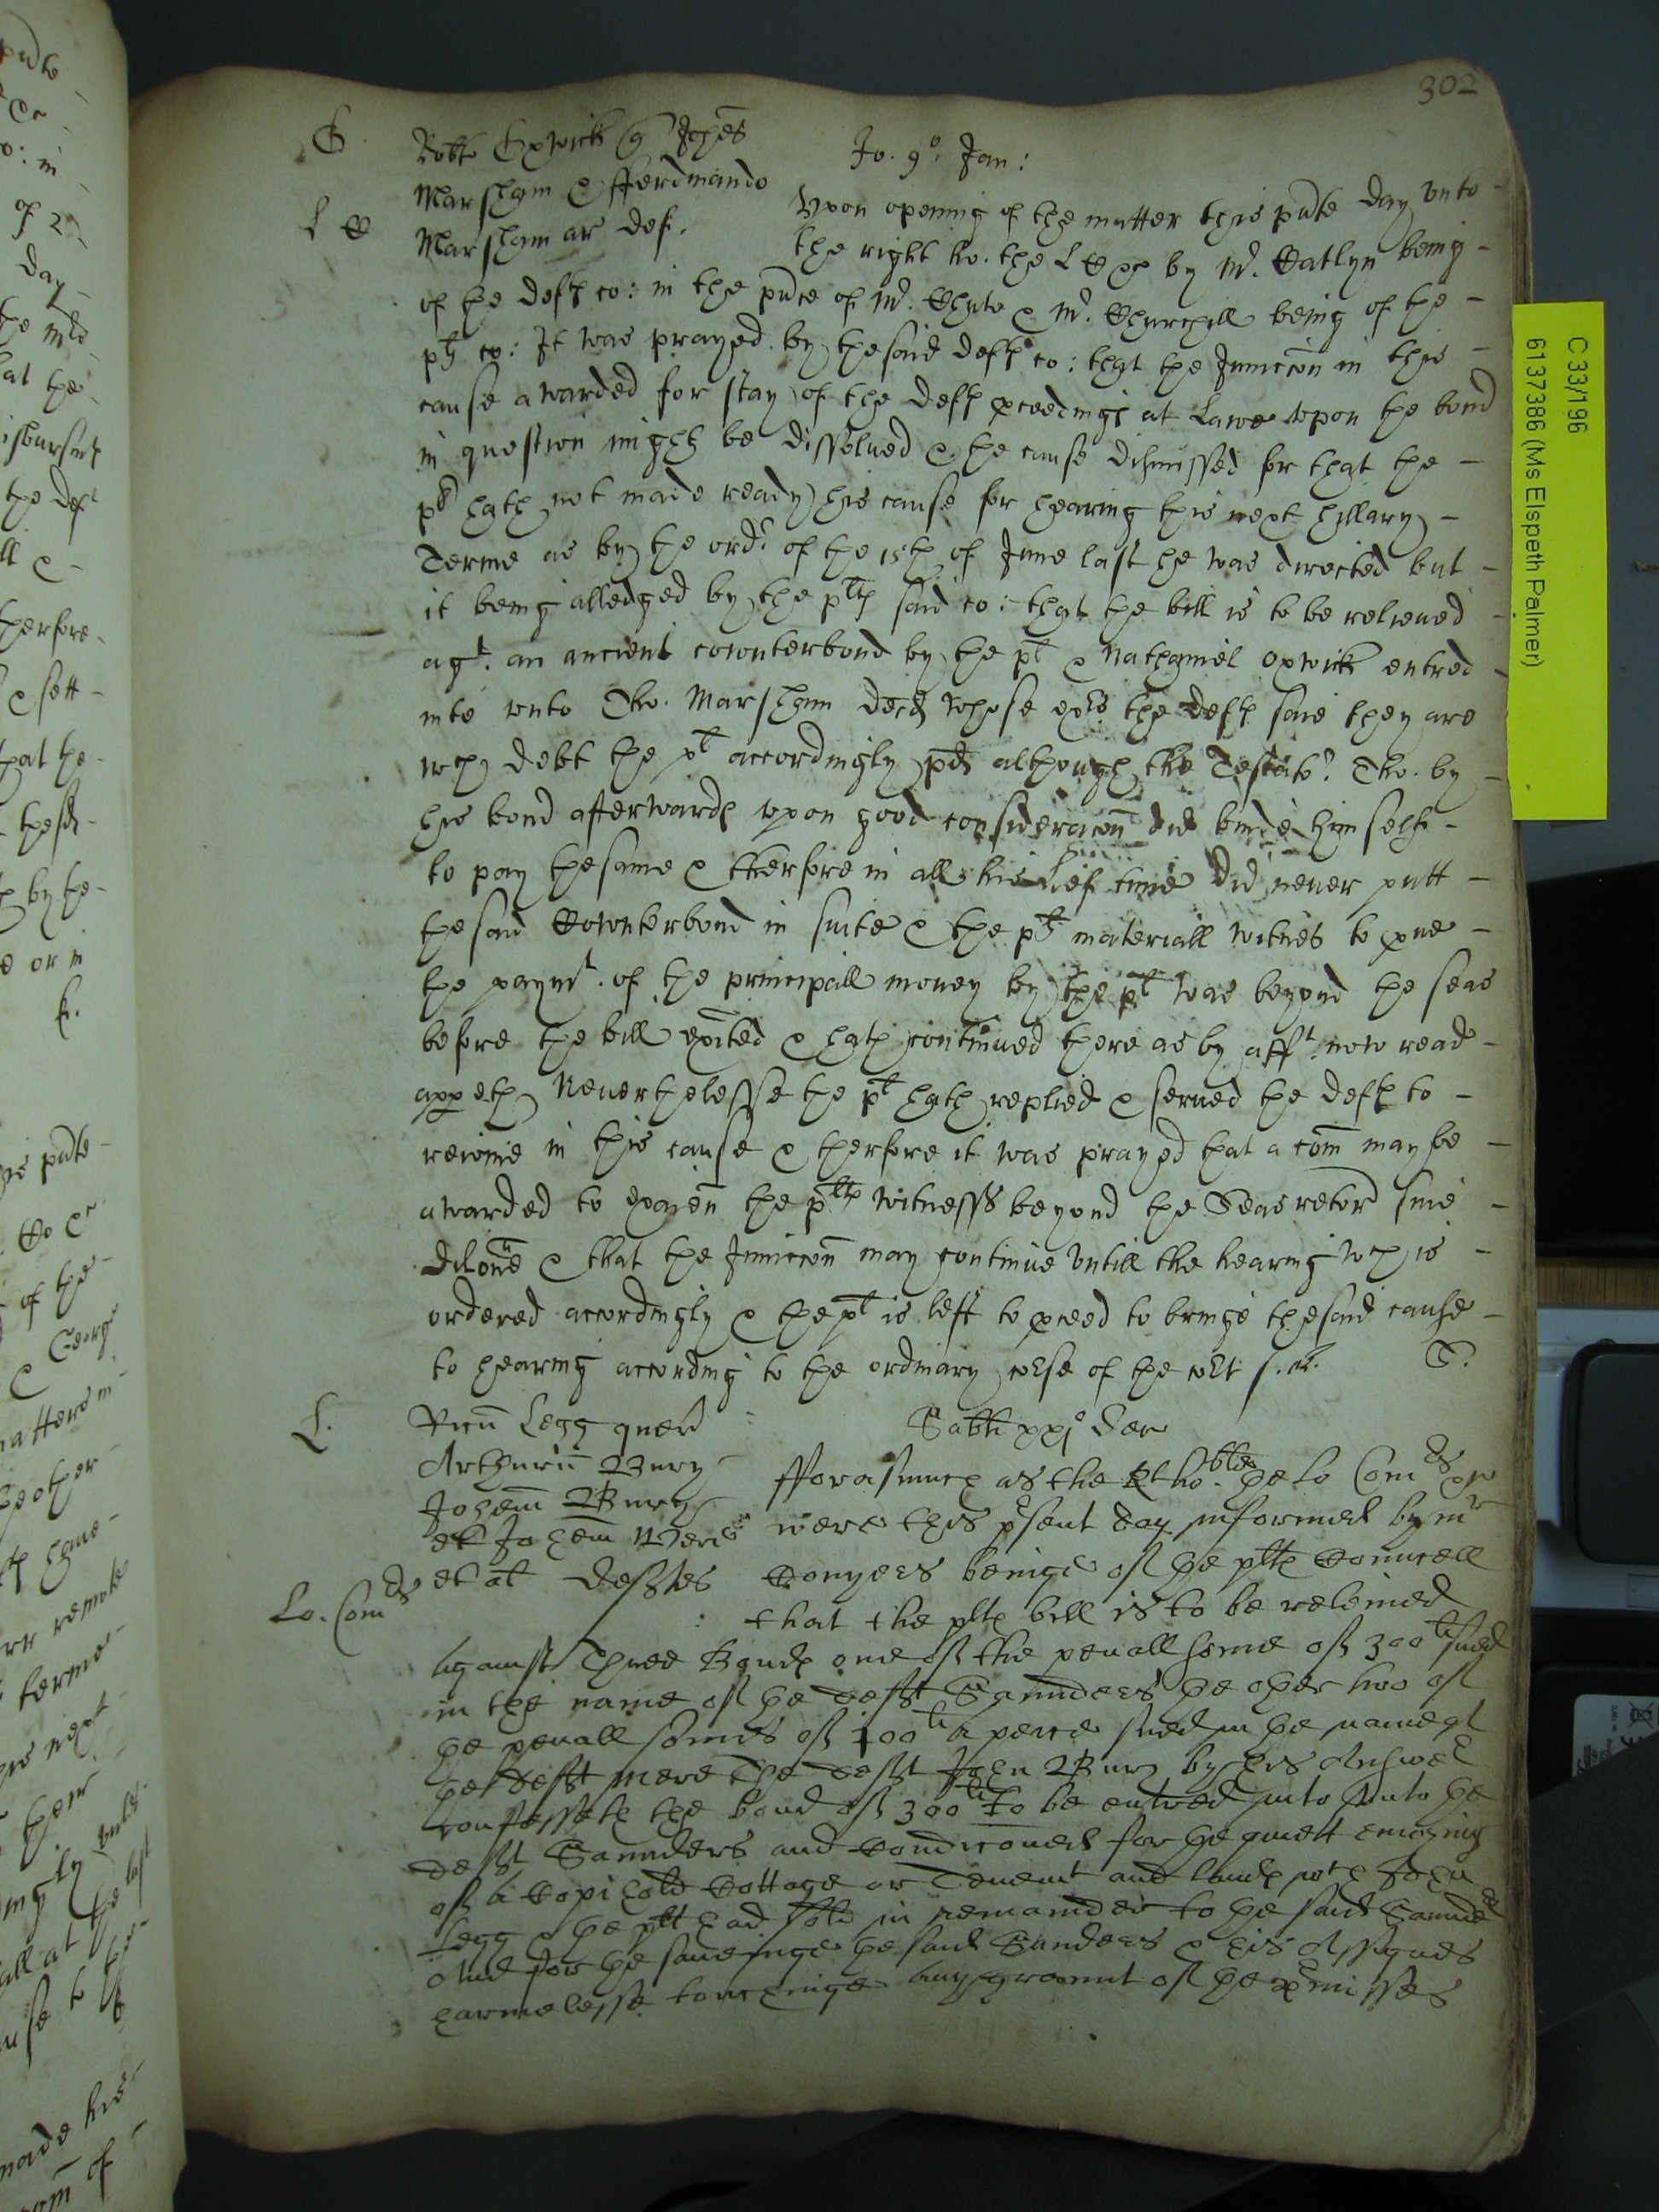 302
G
Robte Oxwick q Johes
Marsham & fferdinando
Marsham ar def.
Jo. 9o. Jan:
L C
Vpon opening of the matter this pnte day vnto
the right ho. the L C by Mr. Catlyn being
of the deftes co: in the pnce of Mr. Chute & Mr. Churchill being of the
ptes co: It was prayed by the said deftes co: that the Iniuccon in this
cause awarded for stay of the deftes pceedings at Lawe vpon the bond
in question might be dissolued & the cause dismissed for that the
pt hath not made ready his cause for hearing this next hillary
Terme as by the ordr of the 15th of June last he was directed but
it being alledged by the pltes said co: that the bill is to be releiued
agt. an ancient counterbond by the pt & Nathaniel Oxwick entred
into vnto Tho. Marsham decd whose exrs the deftes saie they are
wch debt the pt accordingly pd although the Testator Tho. by
his bond afterwardes vpon good consideracon did binde himselfe
to pay the same & therfore in all his lief time did neuer putt
the said Cownterbond in suite & the ptes materiall witnes to proue
the paymt. of the principall money by the pt was beyond the seas
before the bill exited & hath continued there as by afft. now read
appeth Neuerthelesse the pt hath replied & serued the deftes to
reioine in this cause & therfore it was prayed that a com may be
awarded to examen the pltes witnesss beyond the Seas retor sine
dilone & that the Iniuccon may continue vntill the hearing wch is
ordered accordingly & the pt is left to pceed to bringe the said cause
to hearing according to the ordinary course of the court
L.
Ricu Legg quer
Arthuru Bury
Johem Bury
et Johem Mere
et al deftes
Sabti xxjo Dec
Lo. Comrs
fforasmuch as the Rt ho:ble the Lo Comrs
were this psent day informed by mr
Conyers beinge of the pltes Councell
that the pltes bill is to be releiued
against three Bondes one of the penall some of 300li sued
in the name of the deft Saunders the other two of
the penall somes of 100li a peece sued in the name of
the deft Mere The deft John Bury by his Answer
confesseth the bond of 300li to be entred into vnto the
deft Saunders and Condiconed for the quiett enioying
of a Copihold Cottage or Tenemt and landes wch John
Legg & the plt had sold in remainder to the said Saunders
And for the saueinge the said Sanders & his Assignes
harmelesse touchinge any graunt of the pmisses
C 33/196
6137386 (Ms Elspeth Palmer)